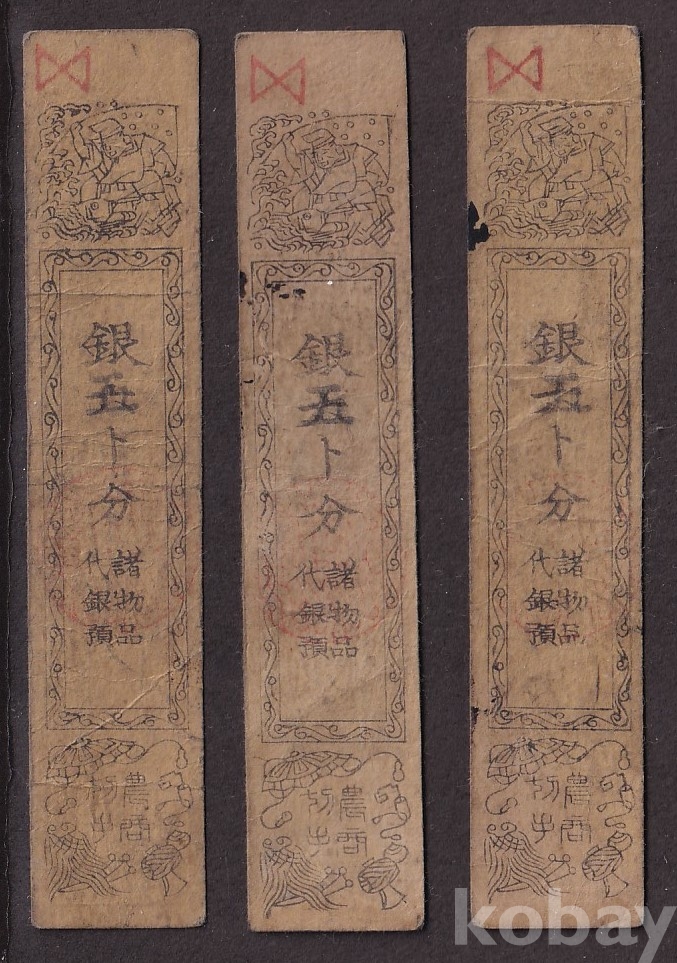 銀五ト分
諸物品
代銀預
農商
切手
銀五ト分
諸物品
代銀預
農商
切手
銀五ト分
諸物品
代銀預
農商
切手
kobay